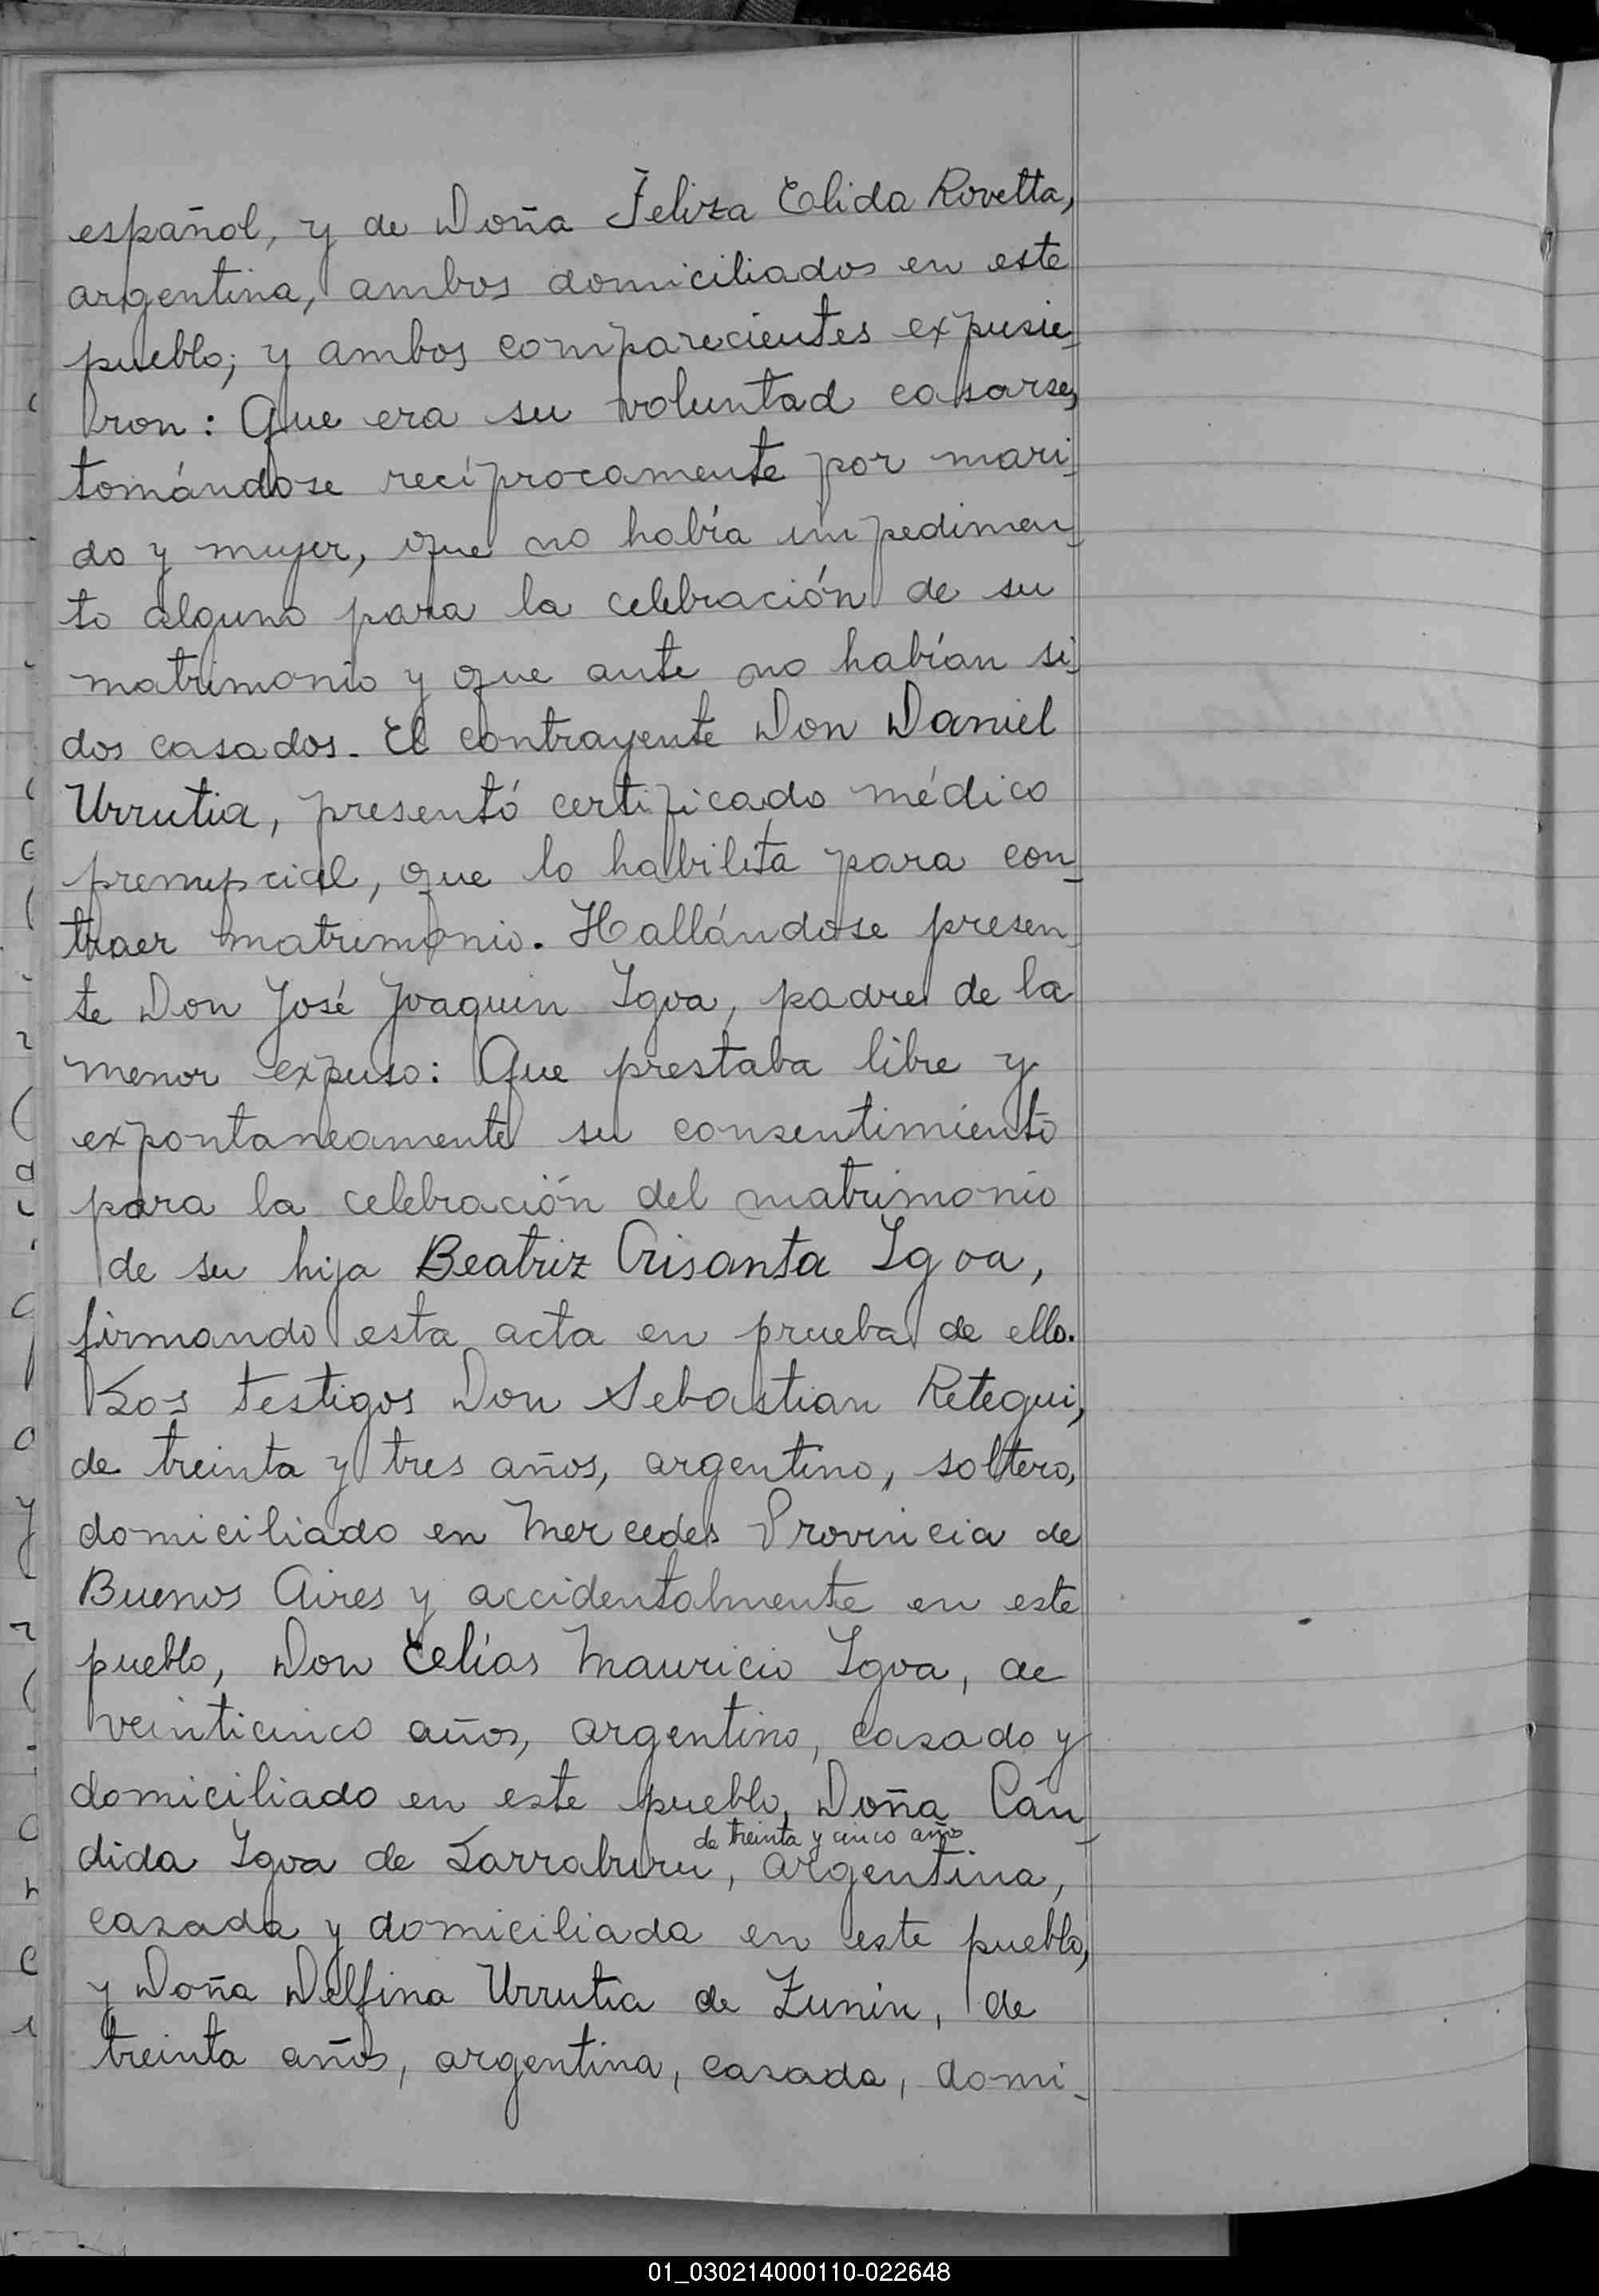 español, y de Doña Feliza Elida Rovetta,
argentina, ambos domiciliados en este
pueblo; y ambos comparecientes expusie-
ron: Que era su voluntad casarse,
tomándose recíprocamente por mari-
do y mujer, que no había impedimen-
to alguno para la celebración de su
matrimonio y que ante no habían si-
dos casados. El contrayente Don Daniel
Urrutia, presentó certificado médico
prenupcial, que lo habilita para con-
traer matrimonio. Hallándose presen-
te Don José Joaquin Igoa, padre de la
menor expuso: Que prestaba libre y
expontaneamente su consentimiento
para la celebración del matrimonio
de su hija Beatriz Crisanta Igoa,
firmando esta acta en prueba de ello.
Los testigos Don Sebastian Retegui,
de treinta y tres años, argentino, soltero,
domiciliado en Mercedes Provincia de
Buenos Aires y accidentalmente en este
pueblo, Don Elías Mauricio Igoa, de
veinticinco años, argentino, casado y
domiciliado en este pueblo, Doña Cán-
de treinta y cinco año
dida Igoa de Larraburu, argentina,
casada y domiciliada en este pueblo,
y Doña Delfina Urrutia de Zunin, de
treinta años, argentina, casada, domi-
01_030214000110-022648